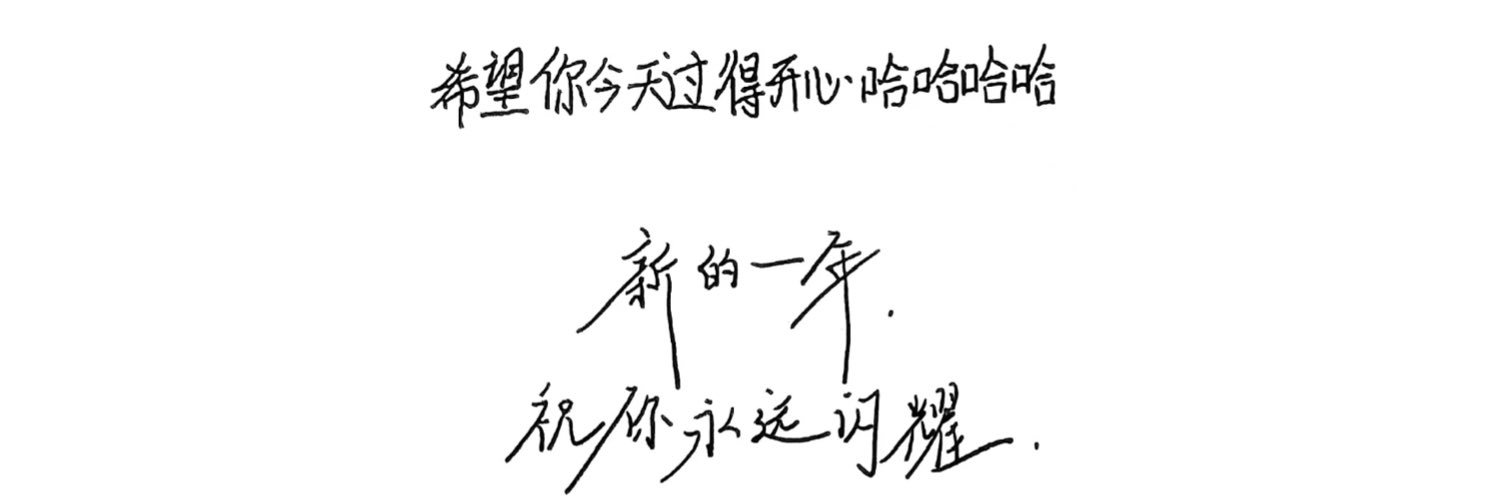 希望你今天过得开心哈哈哈哈
新的一年.
祝你永远闪耀.